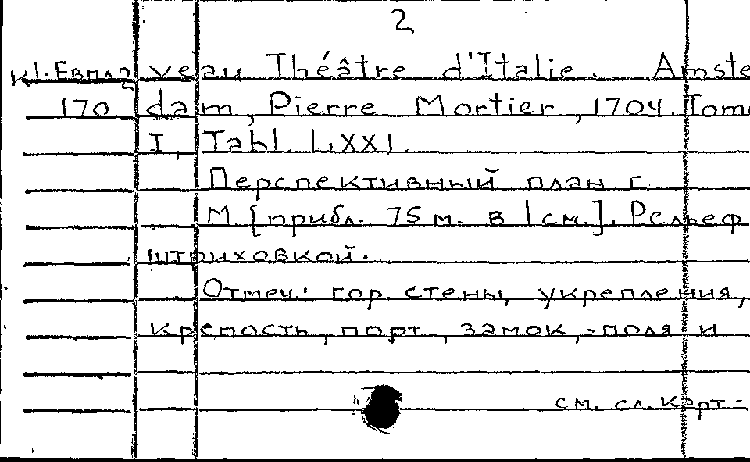 2
veau Théâtre d'Italie. Amste
170 dam, Pierre Mortier, 1704. Tome
I, Tabl. LXXI.
Перспективный план г.
М. [прибл. 75 м. в 1 см.]. Рельеф
штриховкой.
Отмеч: гор. стены, укрепления,
крепость, порт, замок, поля и
см. сл. карт-